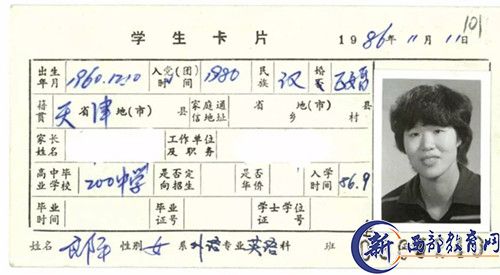 101
学生卡片 1986年11月11日
出生年月 1960.12.10 入党(团)时间 1980 民族 汉 婚 已婚
籍贯 天津 省 地(市) 县 家庭通信地址 省 地(市) 县 乡 村
家长姓名 工作单位及职务
高中毕业学校 200中学 是否定向招生 是否华侨 入学时间 86.9
毕业时间 毕业证号 学士学位证号
姓名 郎平 性别 女 系 外语 专业 英语 科 班
新西部教育网